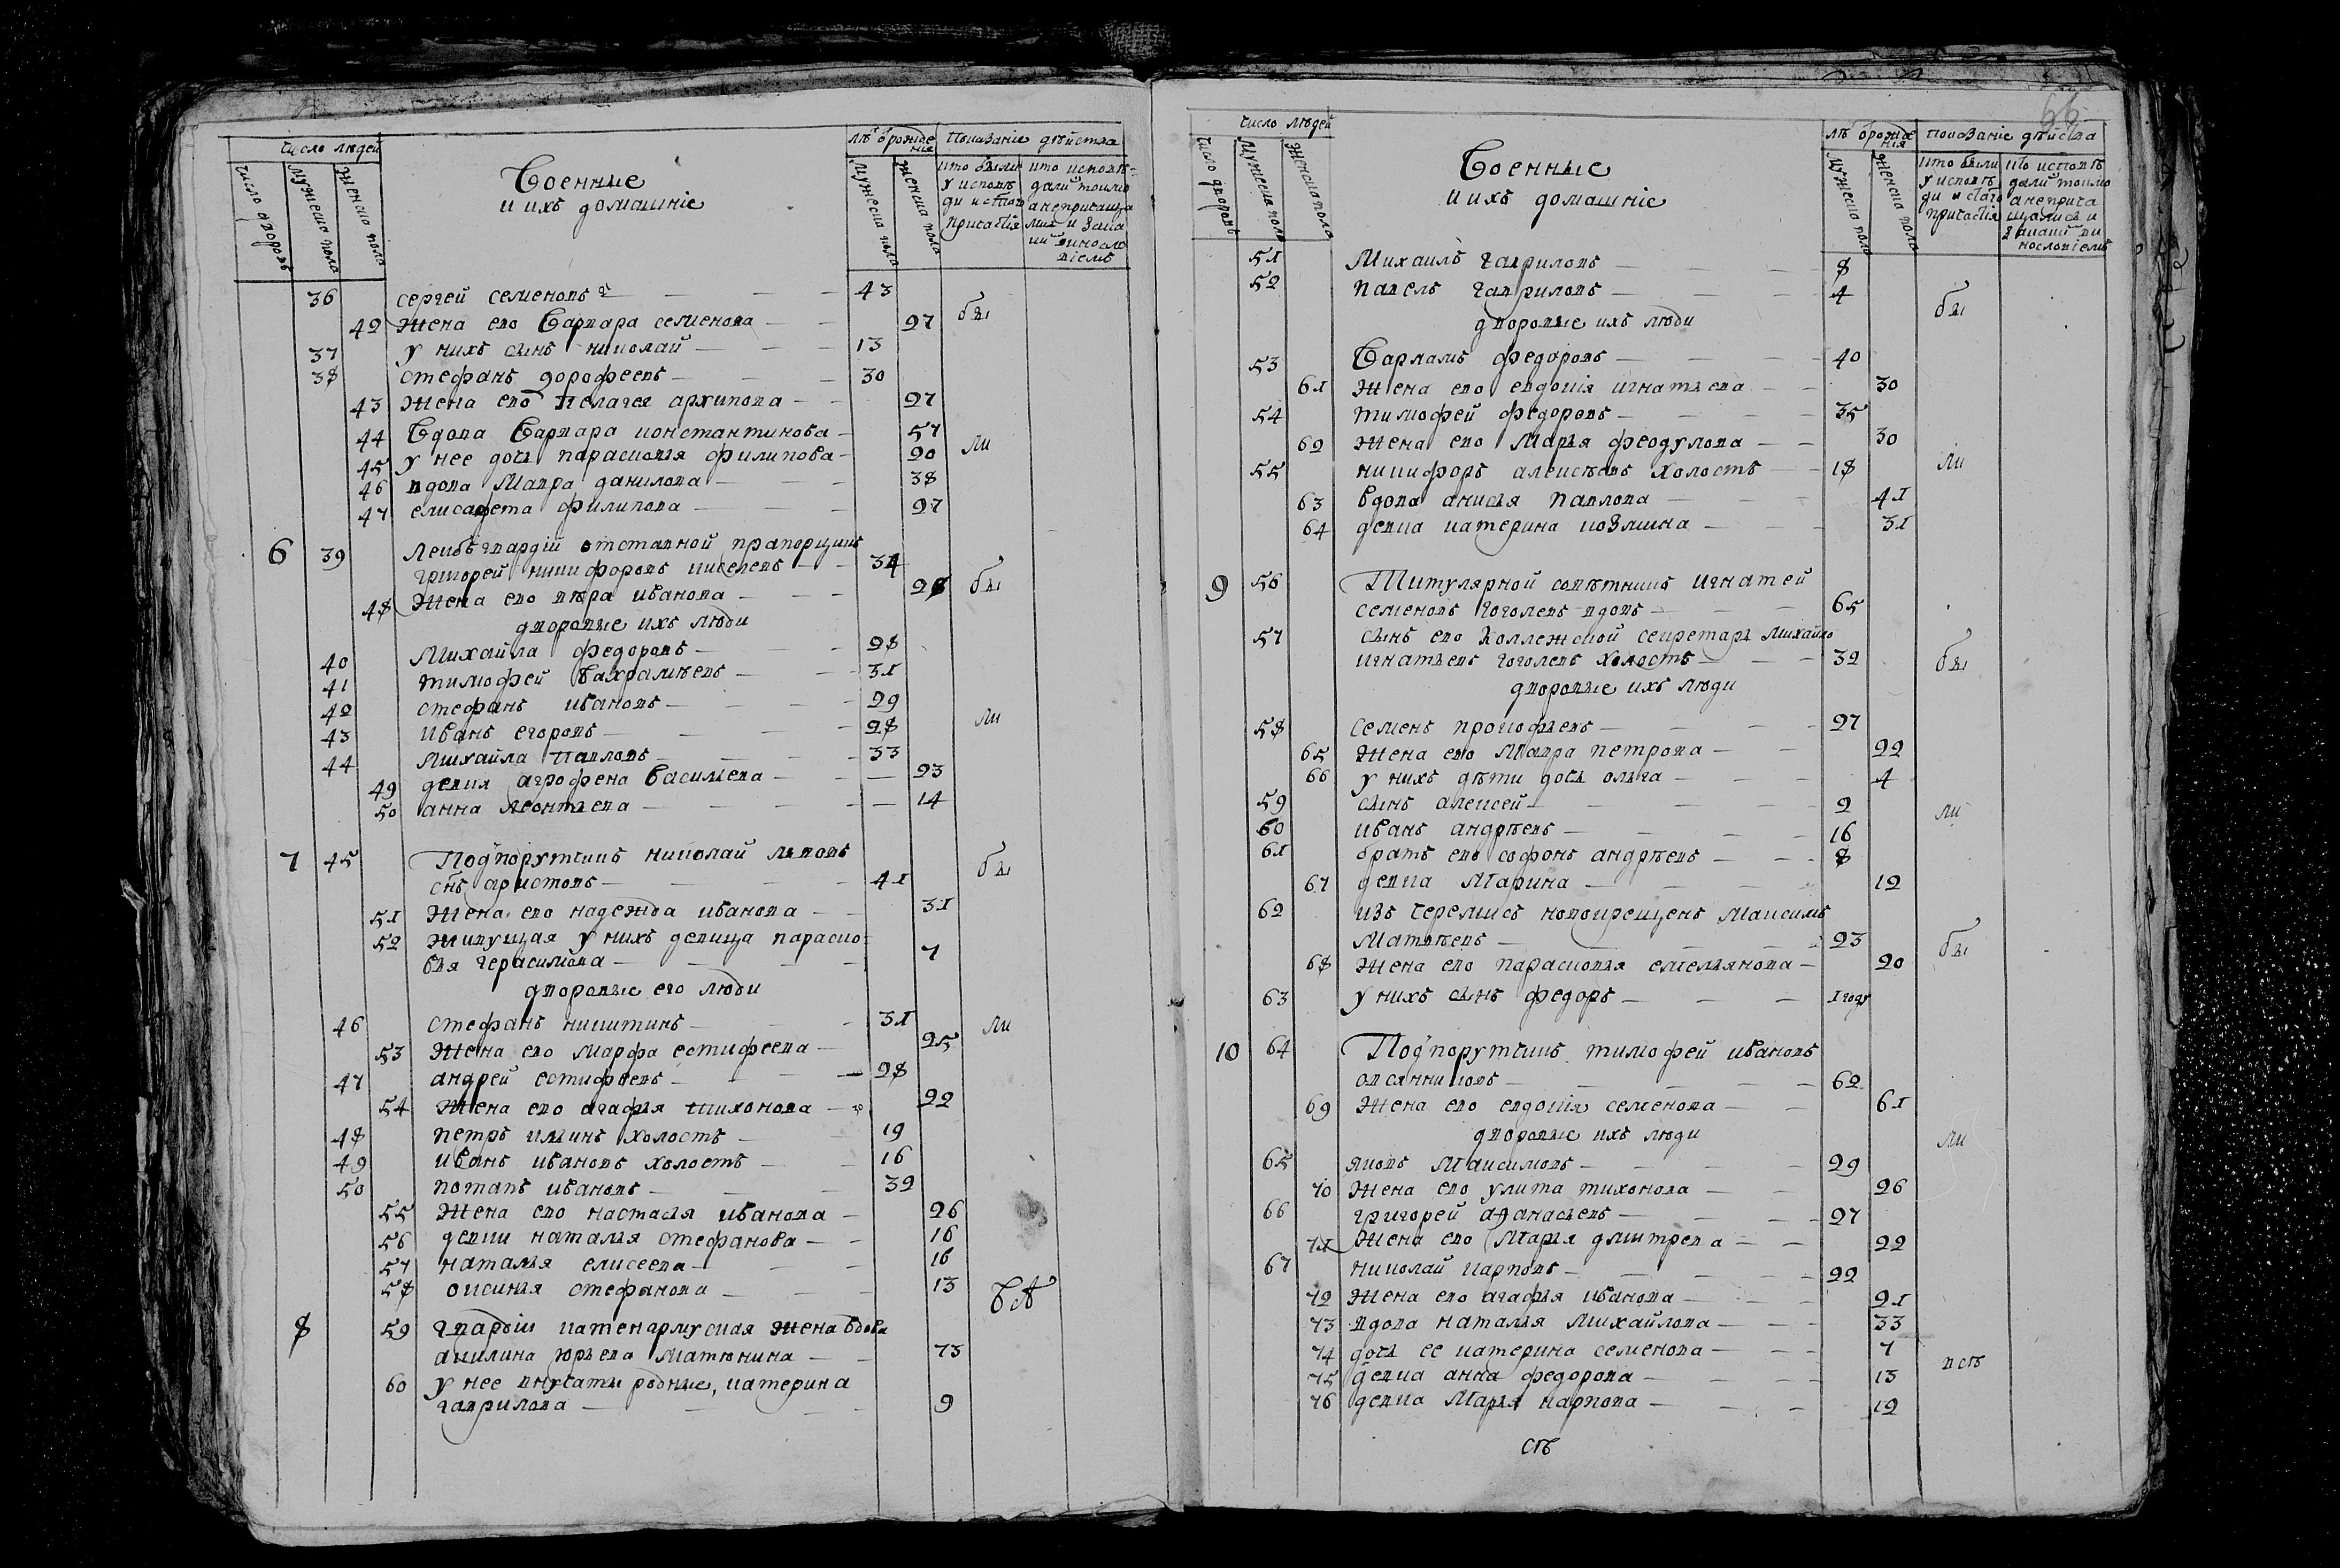 число людей
число дворовъ
мужеска пола
женска пола
Военные
и ихъ домашніе
лѣ ѿ рожде
нія
мужеска пола
женска пола
показаніе дѣйства
кто были
у исповѣ
ди и с̃таго
причастія
кто исповѣ-
дали токмо
а не причаща
лись и зака
36 сергей семеновъ 43
42 жена ево Варвара семенова 27
37 у нихъ сынъ николай 13
38 стефанъ дорофеевъ 30
43 жена ево Пелагея архипова 27
44 Вдова Варвара константинова 57
45 у нее дочь парасковья филипова 20
46 вдова Мавра данилова 38
47 елисавета филипова 27
6 39 Лейбгвардіи отставной прапорщикъ
григорей никифоровъ киселевъ 34
48 жена ево вѣра иванова 28
дворовые ихъ люди
40 Михайла федоровъ 28
41 тимофей Вахрамѣевъ 31
42 стефанъ ивановъ 29
43 иванъ егоровъ 28
44 Михайла павловъ 33
49 девки агрофена Васильева 23
50 анна леонтьева 14
7 45 Подпорутчикъ николай львовъ
сн̃ъ аристовъ 41
51 жена ево надежда иванова 31
52 живущая у нихъ девица параско
вья герасимова 7
дворовые его люди
46 стефанъ никитинъ 31
53 жена ево марфа естифеева 25
47 андрей естифеевъ 28
54 жена ево агафья тихонова 22
48 петръ ильинъ холостъ 19
49 иванъ ивановъ холостъ 16
50 потапъ ивановъ 32
55 жена ево настасья иванова 26
56 девки наталья стефанова 16
57 наталья елисеева 16
58 оксинья стефанова 13
8 59 гвардіи катенармуская жена вдова
акилина юрьева Матюнина 73
60 у нее внучаты родные, катерина
гаврилова 9
бы
ли
бы
ли
бы
ли
68
число людей
число дворовъ
мужеска пола
женска пола
Военные
и ихъ домашніе
лѣ ѿ рожде
нія
мужеска пола
женска пола
показаніе дѣйства
кто были
у исповѣ
ди и с̃таго
причастія
кто исповѣ
дали токмо
а не прича
щались и
51 Михаилъ гавриловъ 8
52 павелъ гавриловъ 4
дворовые ихъ люди
53 Варламъ федоровъ 40
61 жена ево евдокія игнатьева 30
54 тимофей федоровъ 35
62 жена ево Марья феодулова 30
55 никифоръ алексѣевъ холостъ 18
63 Вдова анисья павлова 41
64 девка катерина козмина 31
9 56 Титулярной совѣтникъ игнатей
семеновъ гоголевъ вдовъ 65
57 сынъ ево Коллежской секретарь михайло
игнатьевъ гоголевъ холостъ 32
дворовые ихъ люди
58 семенъ прокофьевъ 27
65 жена ево Мавра петрова 22
66 у нихъ дѣти дочь ольга 4
59 сынъ алексей 2
60 иванъ андрѣевъ 16
61 братъ ево софонъ андрѣевъ 8
67 девка Марина 12
62 изъ черемисъ новокрещенъ максимъ
Матвѣевъ 23
68 жена ево парасковья емельянова 20
63 у нихъ сынъ федоръ 1 году
10 64 Подпорутчикъ тимофей ивановъ
овсянниковъ 62
69 жена ево евдокія семенова 61
дворовые ихъ люди
65 яковъ Максимовъ 29
70 жена ево улита тихонова 26
66 григорей афанасьевъ 27
71 жена ево Марья дмитрева 22
67 николай карповъ 22
72 жена ево агафья иванова 21
73 вдова наталья Михайлова 33
74 дочь ее катерина семенова 7
75 девка анна федорова 13
76 девка Марья карпова 12
бы
ли
бы
ли
бы
ли
всѣ